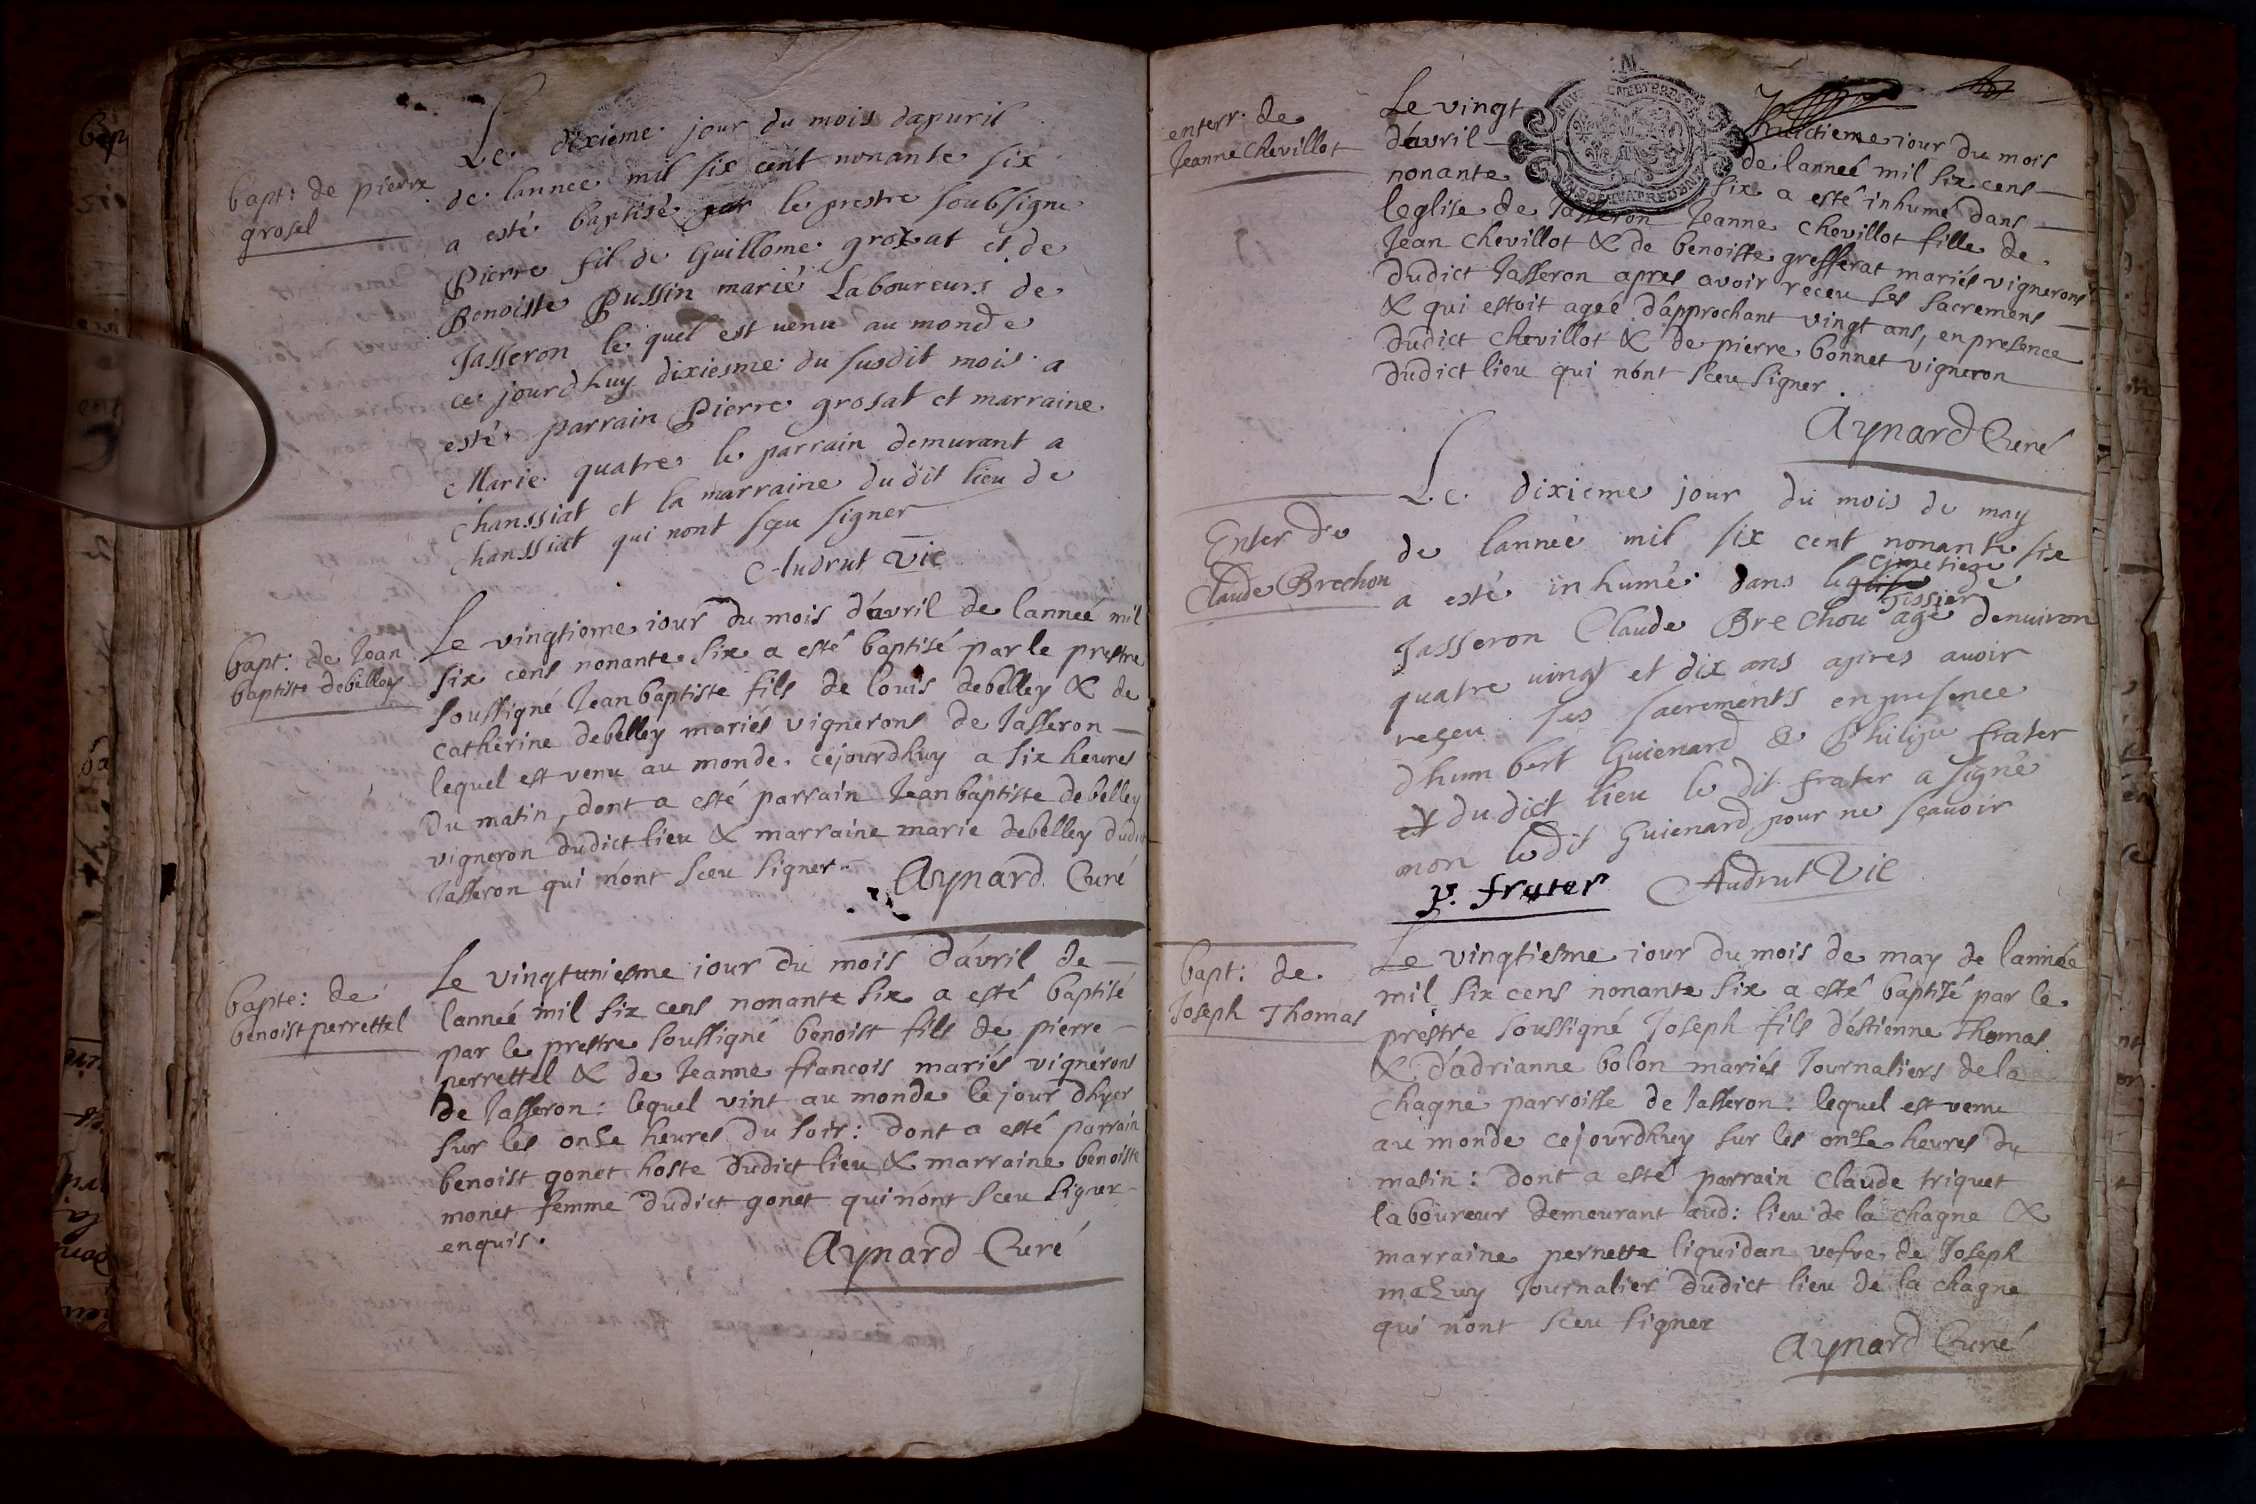 bapt: de pierre
grosel
Le dixiéme jour du mois dapuril
de lannee mil six cent nonante six
a esté baptisé par le prestre soubsigne
Pierre fil de Guillome grosat et de
Benoiste Pussin marié Laboureurs de
Jasseron le quel est uenu au monde
ce jourdhuy dixiesme du susdit mois a
esté parrain Pierre grosat et marraine
Marie quatre le parrain demurant a
chanssiat et la marraine dudit lieu de
chanssiat qui nont sceu signer
Audrut Vic
bapt: de Jean
baptiste debelley
Le vingtiome iour du mois d'avril de lanneé mil
six cens nonante six a esté baptisé par le prestre
soussigné Jean baptiste fils de louis debelley & de
catherine debelley mariés vignerons de Jasseron
lequel est venu au monde cejourdhuy a six heures
du matin, dont a esté parrain Jean baptiste debelley
vigneron dudict lieu & marraine marie debelley dudict
Jasseron qui n'ont sceu signer
Aynard Curé
bapte: de
benoist perrettel
Le vingtuniesme iour du mois d'avril de
lanneé mil six cens nonante six a esté baptisé
par le prestre soussigné benoist fils de pierre
perrettel & de Jeanne francois mariés vignerons
de Jasseron: lequel vint au monde le jour dhyer
sur les onse heures du soir: dont a esté parrain
benoist gonet hoste dudict lieu & marraine benoiste
monet femme dudict gonet qui n'ont sceu signer
enquis.
Aynard Curé
enterr. de
Jeanne Chevillot
Le vingt huictieme iour du mois
d'avril de lanneé mil six cens
nonante six a esté inhumé dans
leglise de Jasseron Jeanne Chevillot fille de
Jean Chevillot & de benoiste grefferat mariés vignerons
dudict Jasseron apres avoir receu ses sacremens
& qui estoit ageé d'approchant vingt ans, en presence
dudict chevillot & de pierre bonnet vigneron
dudict lieu qui nont sceu signer.
Aynard Curé
Enter de
Claude Brechou
Le dixieme jour du mois de may
de lanneé mil six cent nonante six
cimetiere
a esté inhumé dans leglise de
Tissier
Jasseron Claude Brechou agé denuiron
quatre uingt et dix ans apres auoir
reçeu ses sacrements en presence
dhumbert Guienard & Philipe frater
et du dict lieu le dit frater a signé
non ledit Guienard pour ne sçauoir
p. frater Audrut Vic
bapt: de
Joseph Thomas
Le vingtiesme iour du mois de may de lannée
mil six cens nonante six a esté baptizé par le
prestre soussigné Joseph fils d'estienne Thomas
& d'adrianne bolon mariés Journaliers de la
Chagne parroisse de Jasseron: lequel est venu
au monde cejourdhuy sur les onse heures du
matin: dont a esté parrain Claude triquet
laboureur demeurant aud: lieu de la chagne &
marraine pernette liquidan vefve de Joseph
mazuy Journalier dudict lieu de la chagne
qui n'ont sceu signer
Aynard Curé